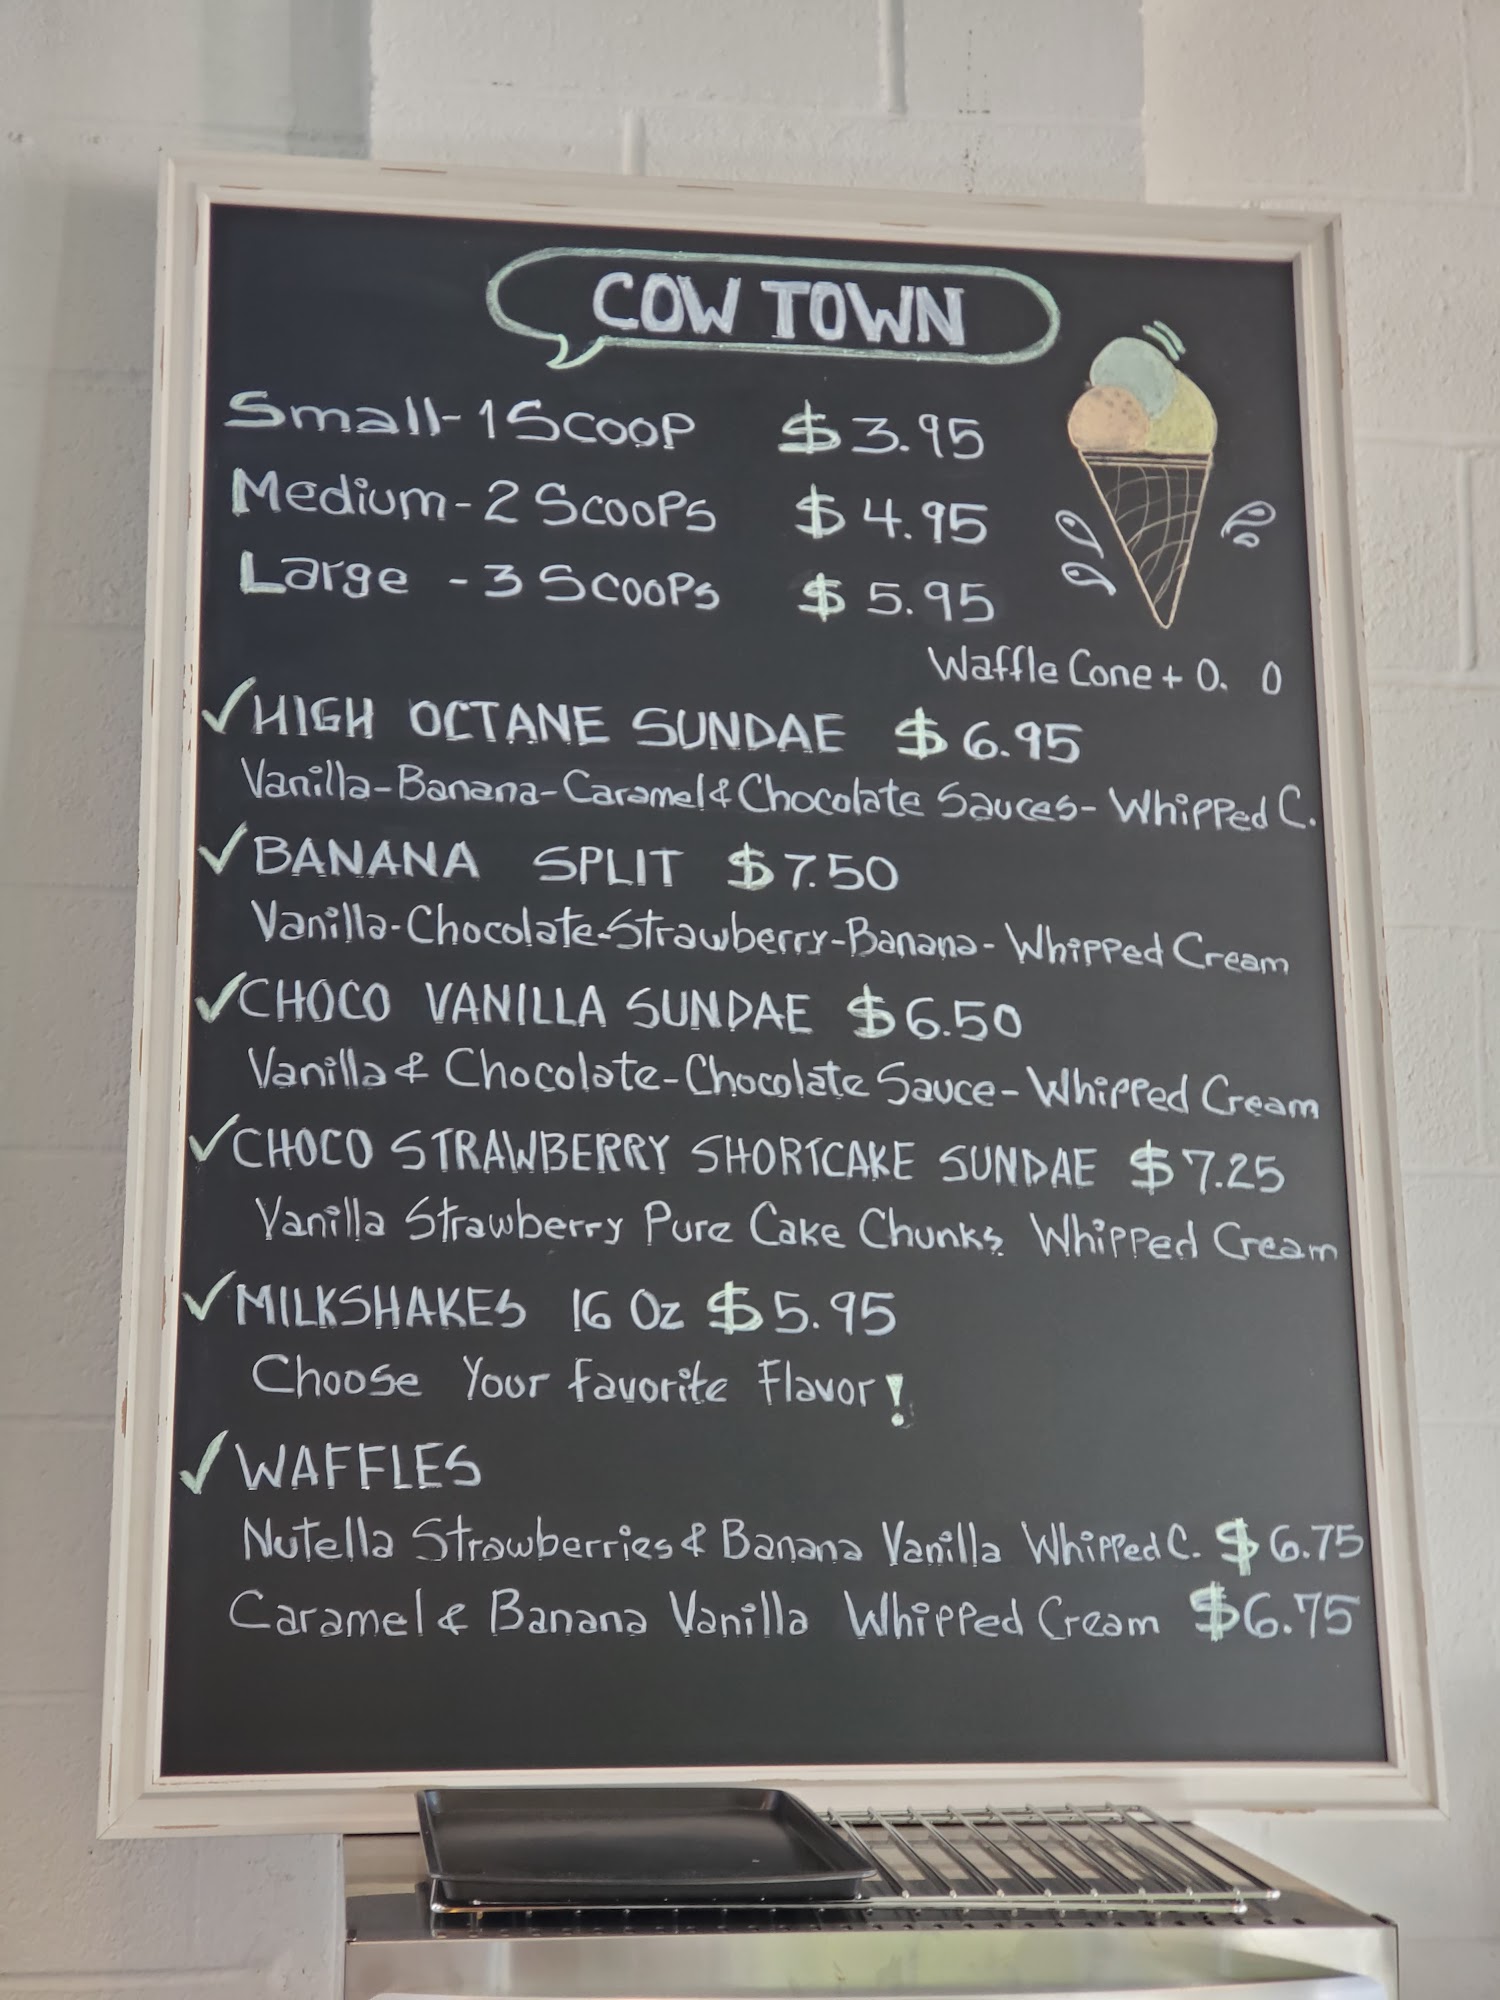 COW TOWN
Small-1 Scoop $3.95
Medium-2 Scoops $4.95
Large -3 Scoops $5.95
Waffle Cone + 0. 0
✓HIGH OCTANE SUNDAE $6.95
Vanilla-Banana-Caramel & Chocolate Sauces- Whipped C.
✓BANANA SPLIT $7.50
Vanilla-Chocolate-Strawberry-Banana- Whipped Cream
✓CHOCO VANILLA SUNDAE $6.50
Vanilla & Chocolate-Chocolate Sauce- Whipped Cream
✓CHOCO STRAWBERRY SHORTCAKE SUNDAE $7.25
Vanilla Strawberry Pure Cake Chunks Whipped Cream
✓MILKSHAKES 16 Oz $5.95
Choose Your favorite Flavor!
✓WAFFLES
Nutella Strawberries & Banana Vanilla Whipped C. $6.75
Caramel & Banana Vanilla Whipped Cream $6.75